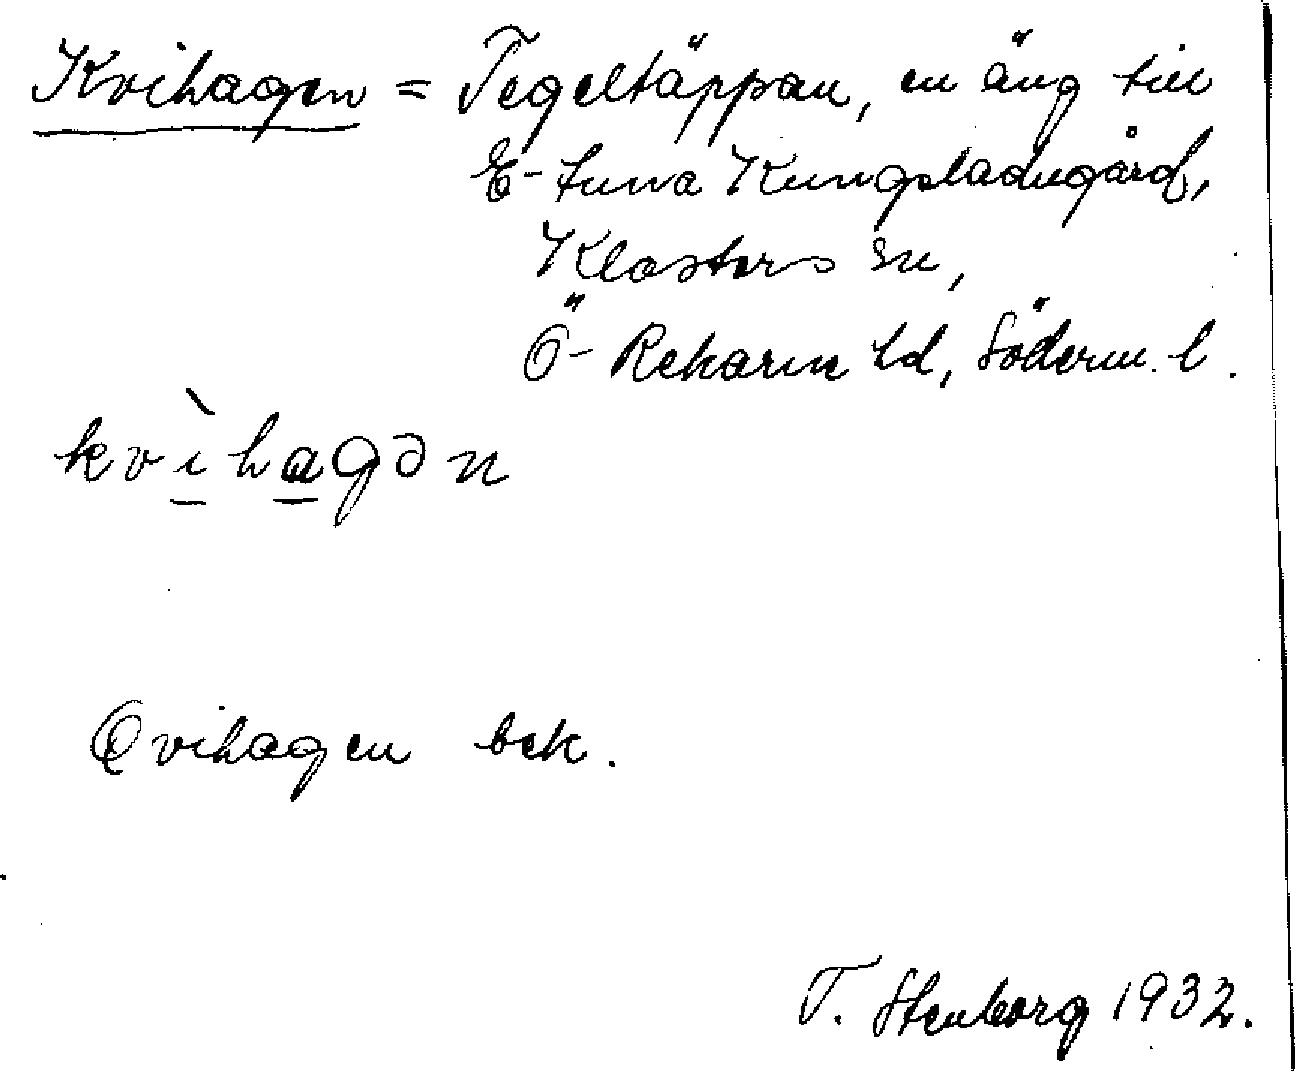 Kvihagen = Tegeltäppan, en äng till
E-tuna Kungsladugård,
Klosters sn,
Ö- Rekarne hd, Söderm. l.
kvìhagən
Qvihagen bek.
T. Stenborg 1932.